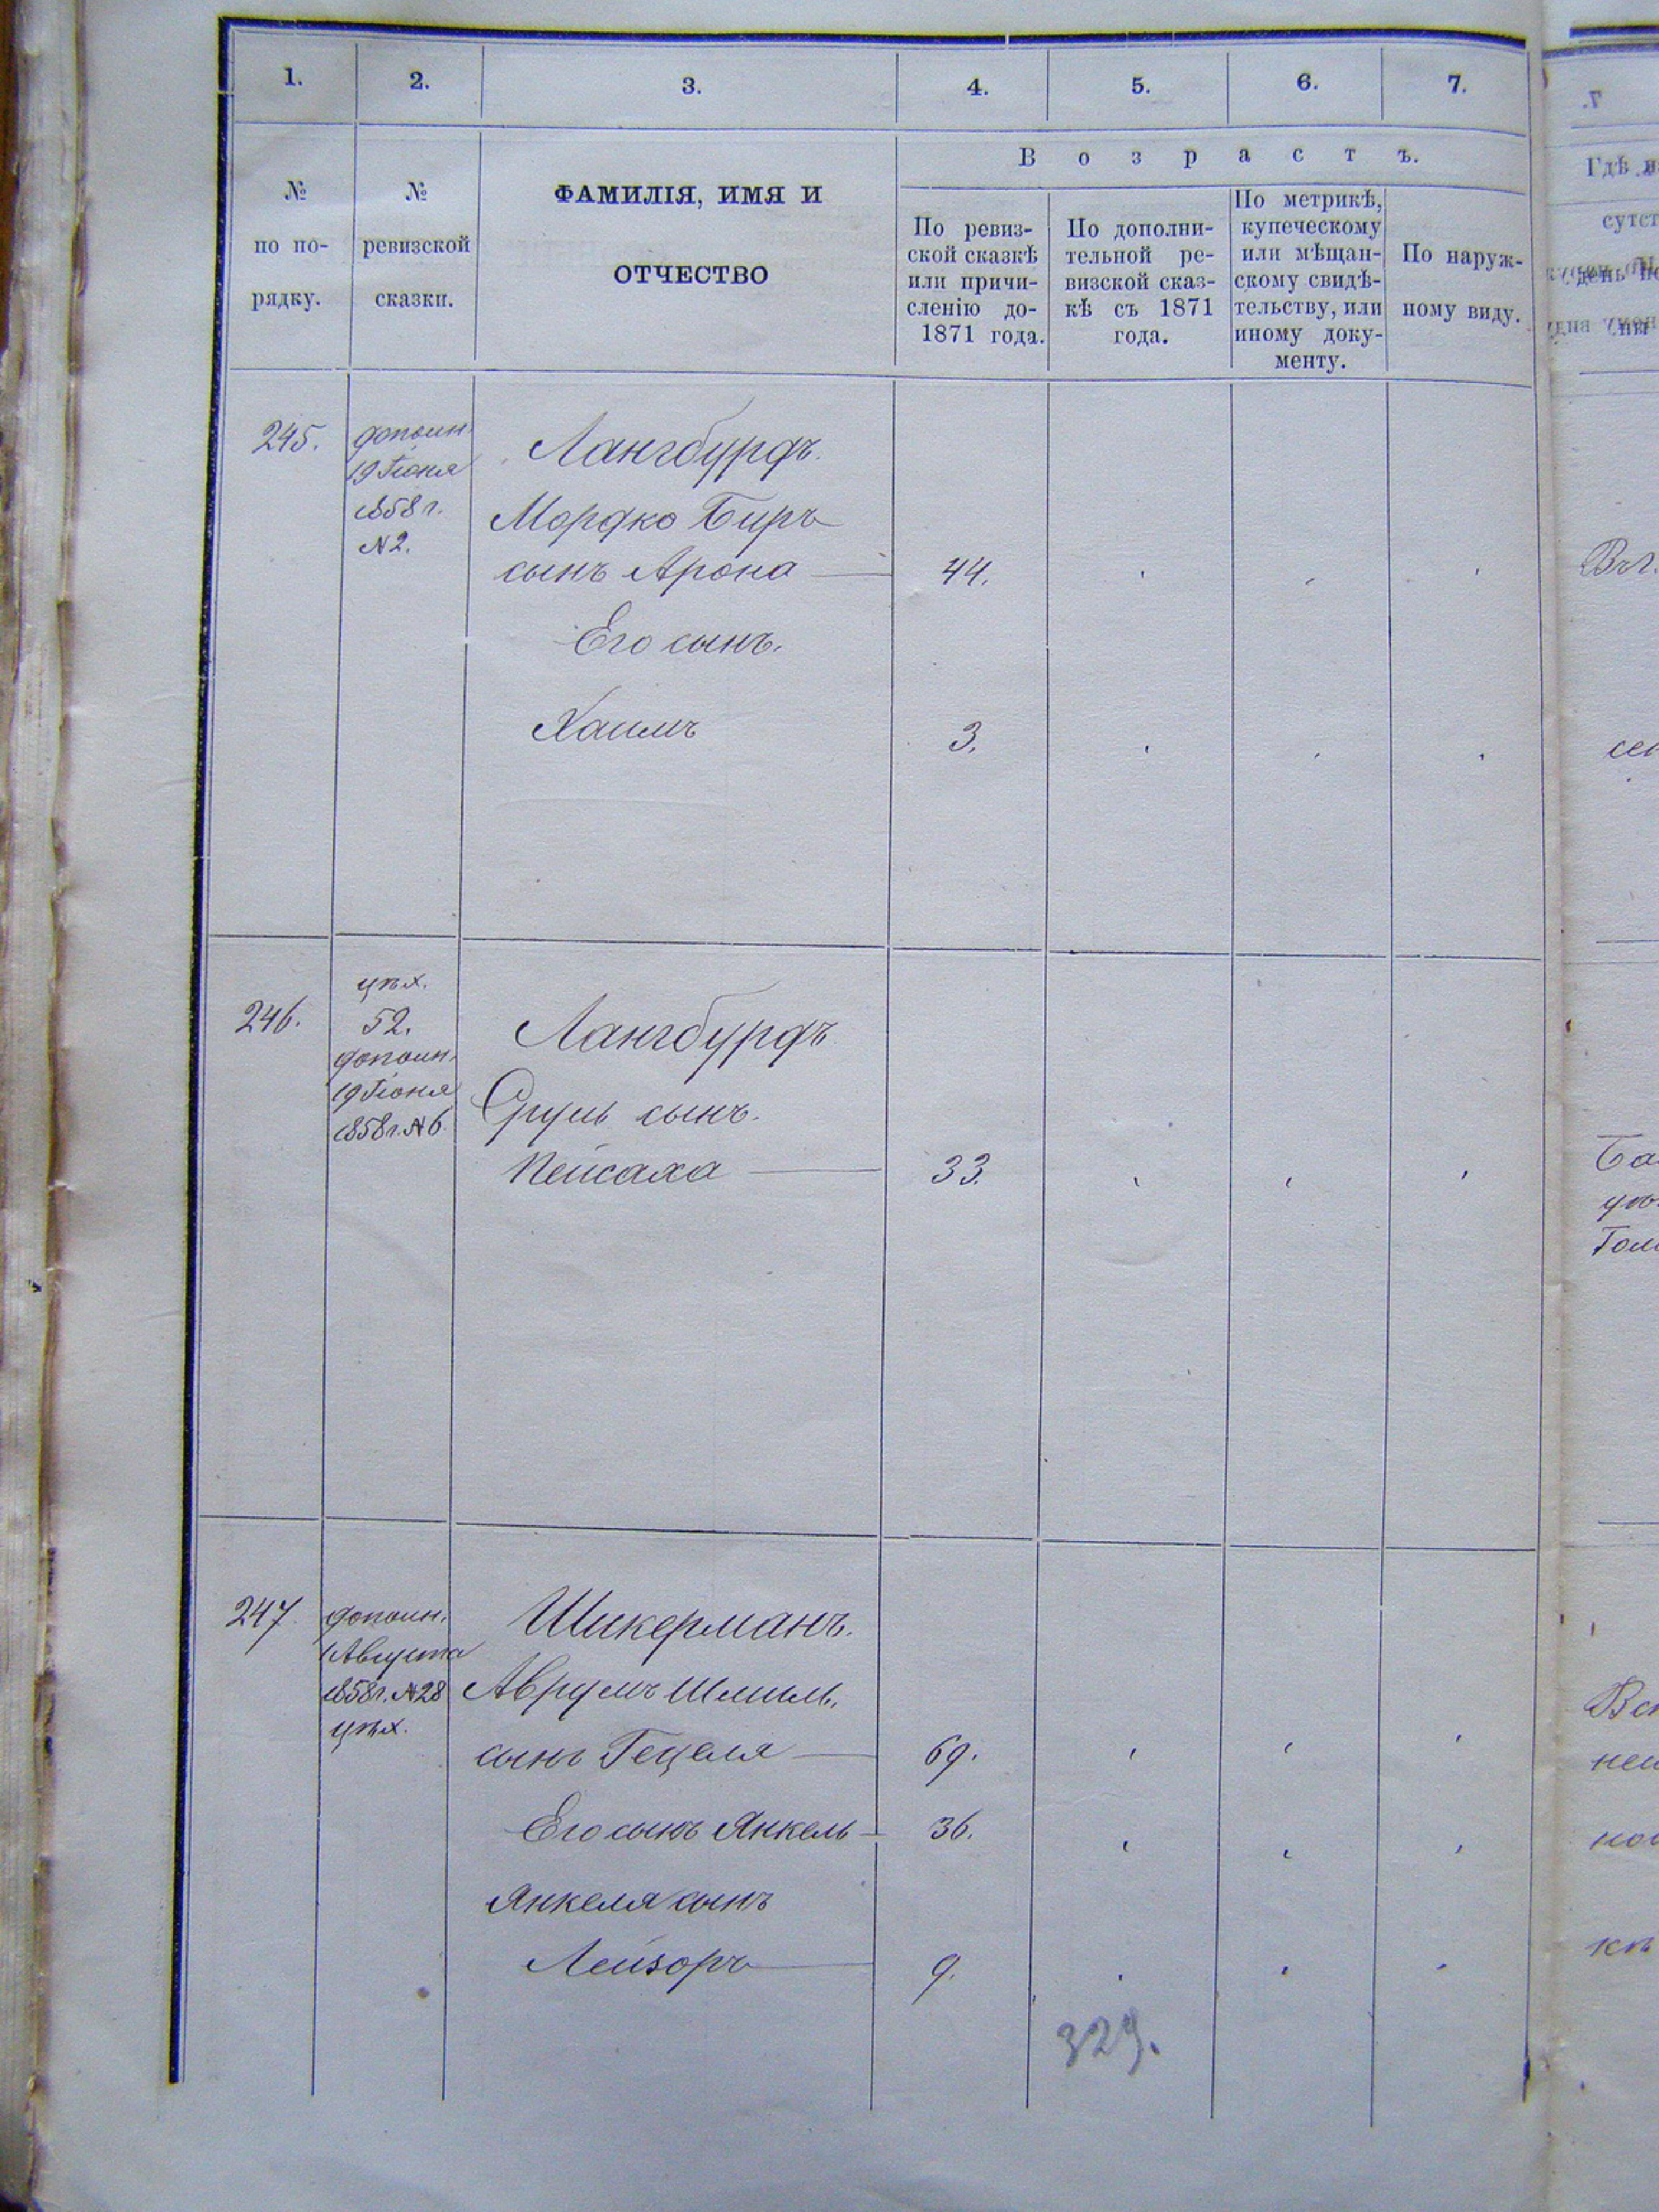 1.
2.
3.
4.
5.
6.
7.
№
по по-
рядку.
№
ревизской
сказки.
ФАМИЛІЯ, ИМЯ И
ОТЧЕСТВО
Возрастъ.
По ревиз-
ской сказкѣ
или причи-
сленію до-
1871 года.
По дополни-
тельной ре-
визской сказ-
кѣ съ 1871
года.
По метрикѣ,
купеческому
или мѣщан-
скому свидѣ-
тельству, или
иному доку-
менту.
По наруж-
ному виду.
Гдѣ
сутст
245.
дополн.
19 Іюня
1858 г.
№ 2.
Лангбурдъ.
Мордко Биръ
сынъ Арона
44.
Его сынъ.
Хаимъ
3.
246.
цѣх.
52.
дополн.
19 Іюня
1858 г. № 6.
Лангбурдъ
Сруль сынъ.
Пейсаха
33.
247.
дополн.
1 Августа
1858 г. № 28
цѣх.
Шикерманъ.
Аврумъ Шмиль,
сынъ Гецеля
69.
Его сынъ Янкель
36.
Янкеля сынъ
Лейзоръ
9.
329.